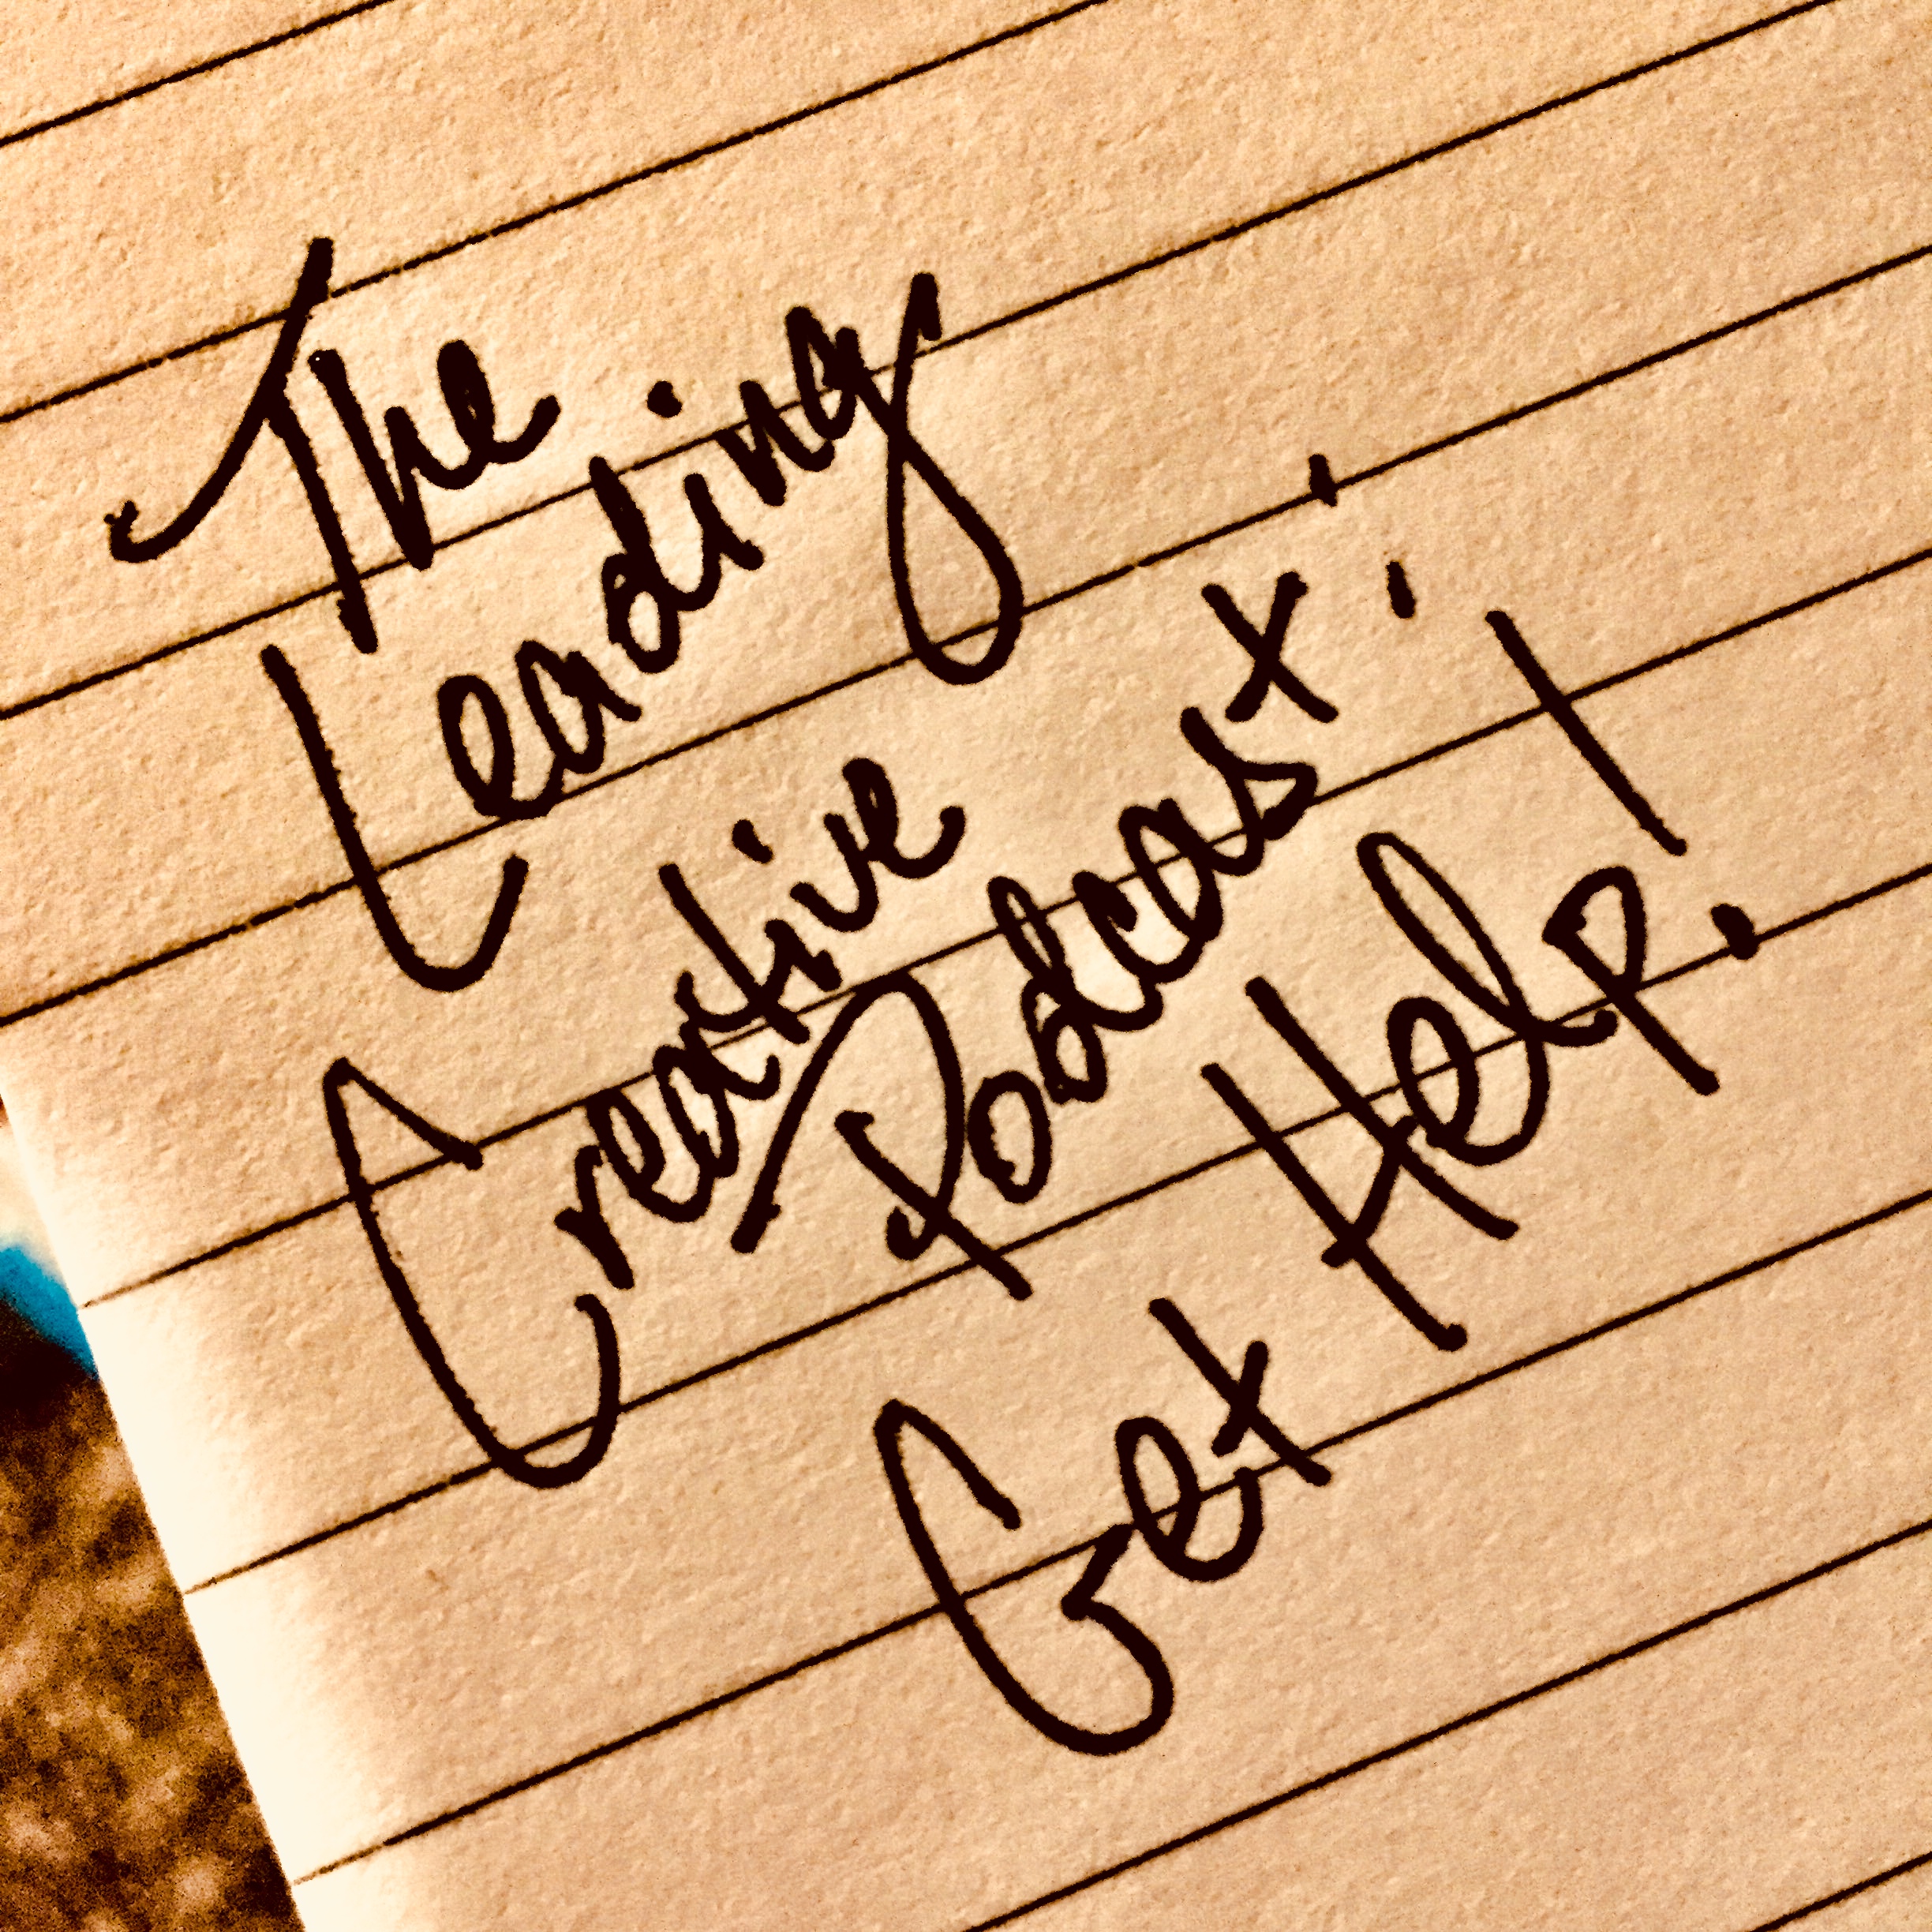 The
Leading
Creative
Podcast:
Get Help!